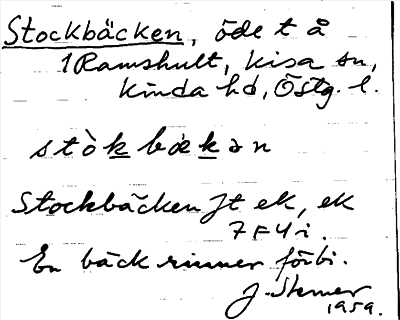 Stockbäcken, öde t å
1 Ramshult, Kisa sn,
Kinda hd, Östg. l.
stòk bækən
Stockbäcken Jt ek, ek
7F4i.
En bäck rinner förbi.
J. Stener
1959.